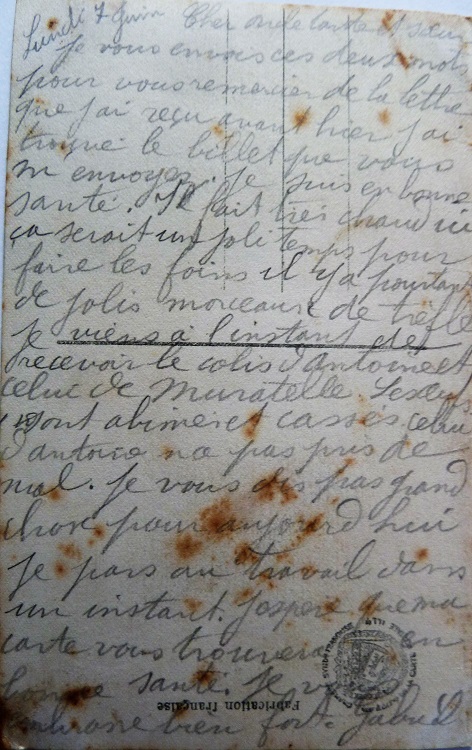 Lundi 7 Juin Cher oncle tante et sœur
Je vous envois ces deux mots
pour vous remercier de la lettre
que j'ai reçu avant hier j'ai
trouvé le billet que vous
m envoyez. Je suis en bonne
santé. Il fait très chaud ici
ça serait un joli temps pour
faire les foins il y a pourtant
de jolis morceaux de trefle
Je viens à l'instant de
recevoir le colis d'Antoine et
celui de Muratelle les
sont abimer et cassés celui
d'antoine na pas pris de
mal. Je vous dis pas grand
chose pour aujourd hui
Je pars au travail dans
un instant. J'espere que ma
carte vous trouvera en
bonne santé. Je v
embrasse bien fort. Gabriel
Fabrication française